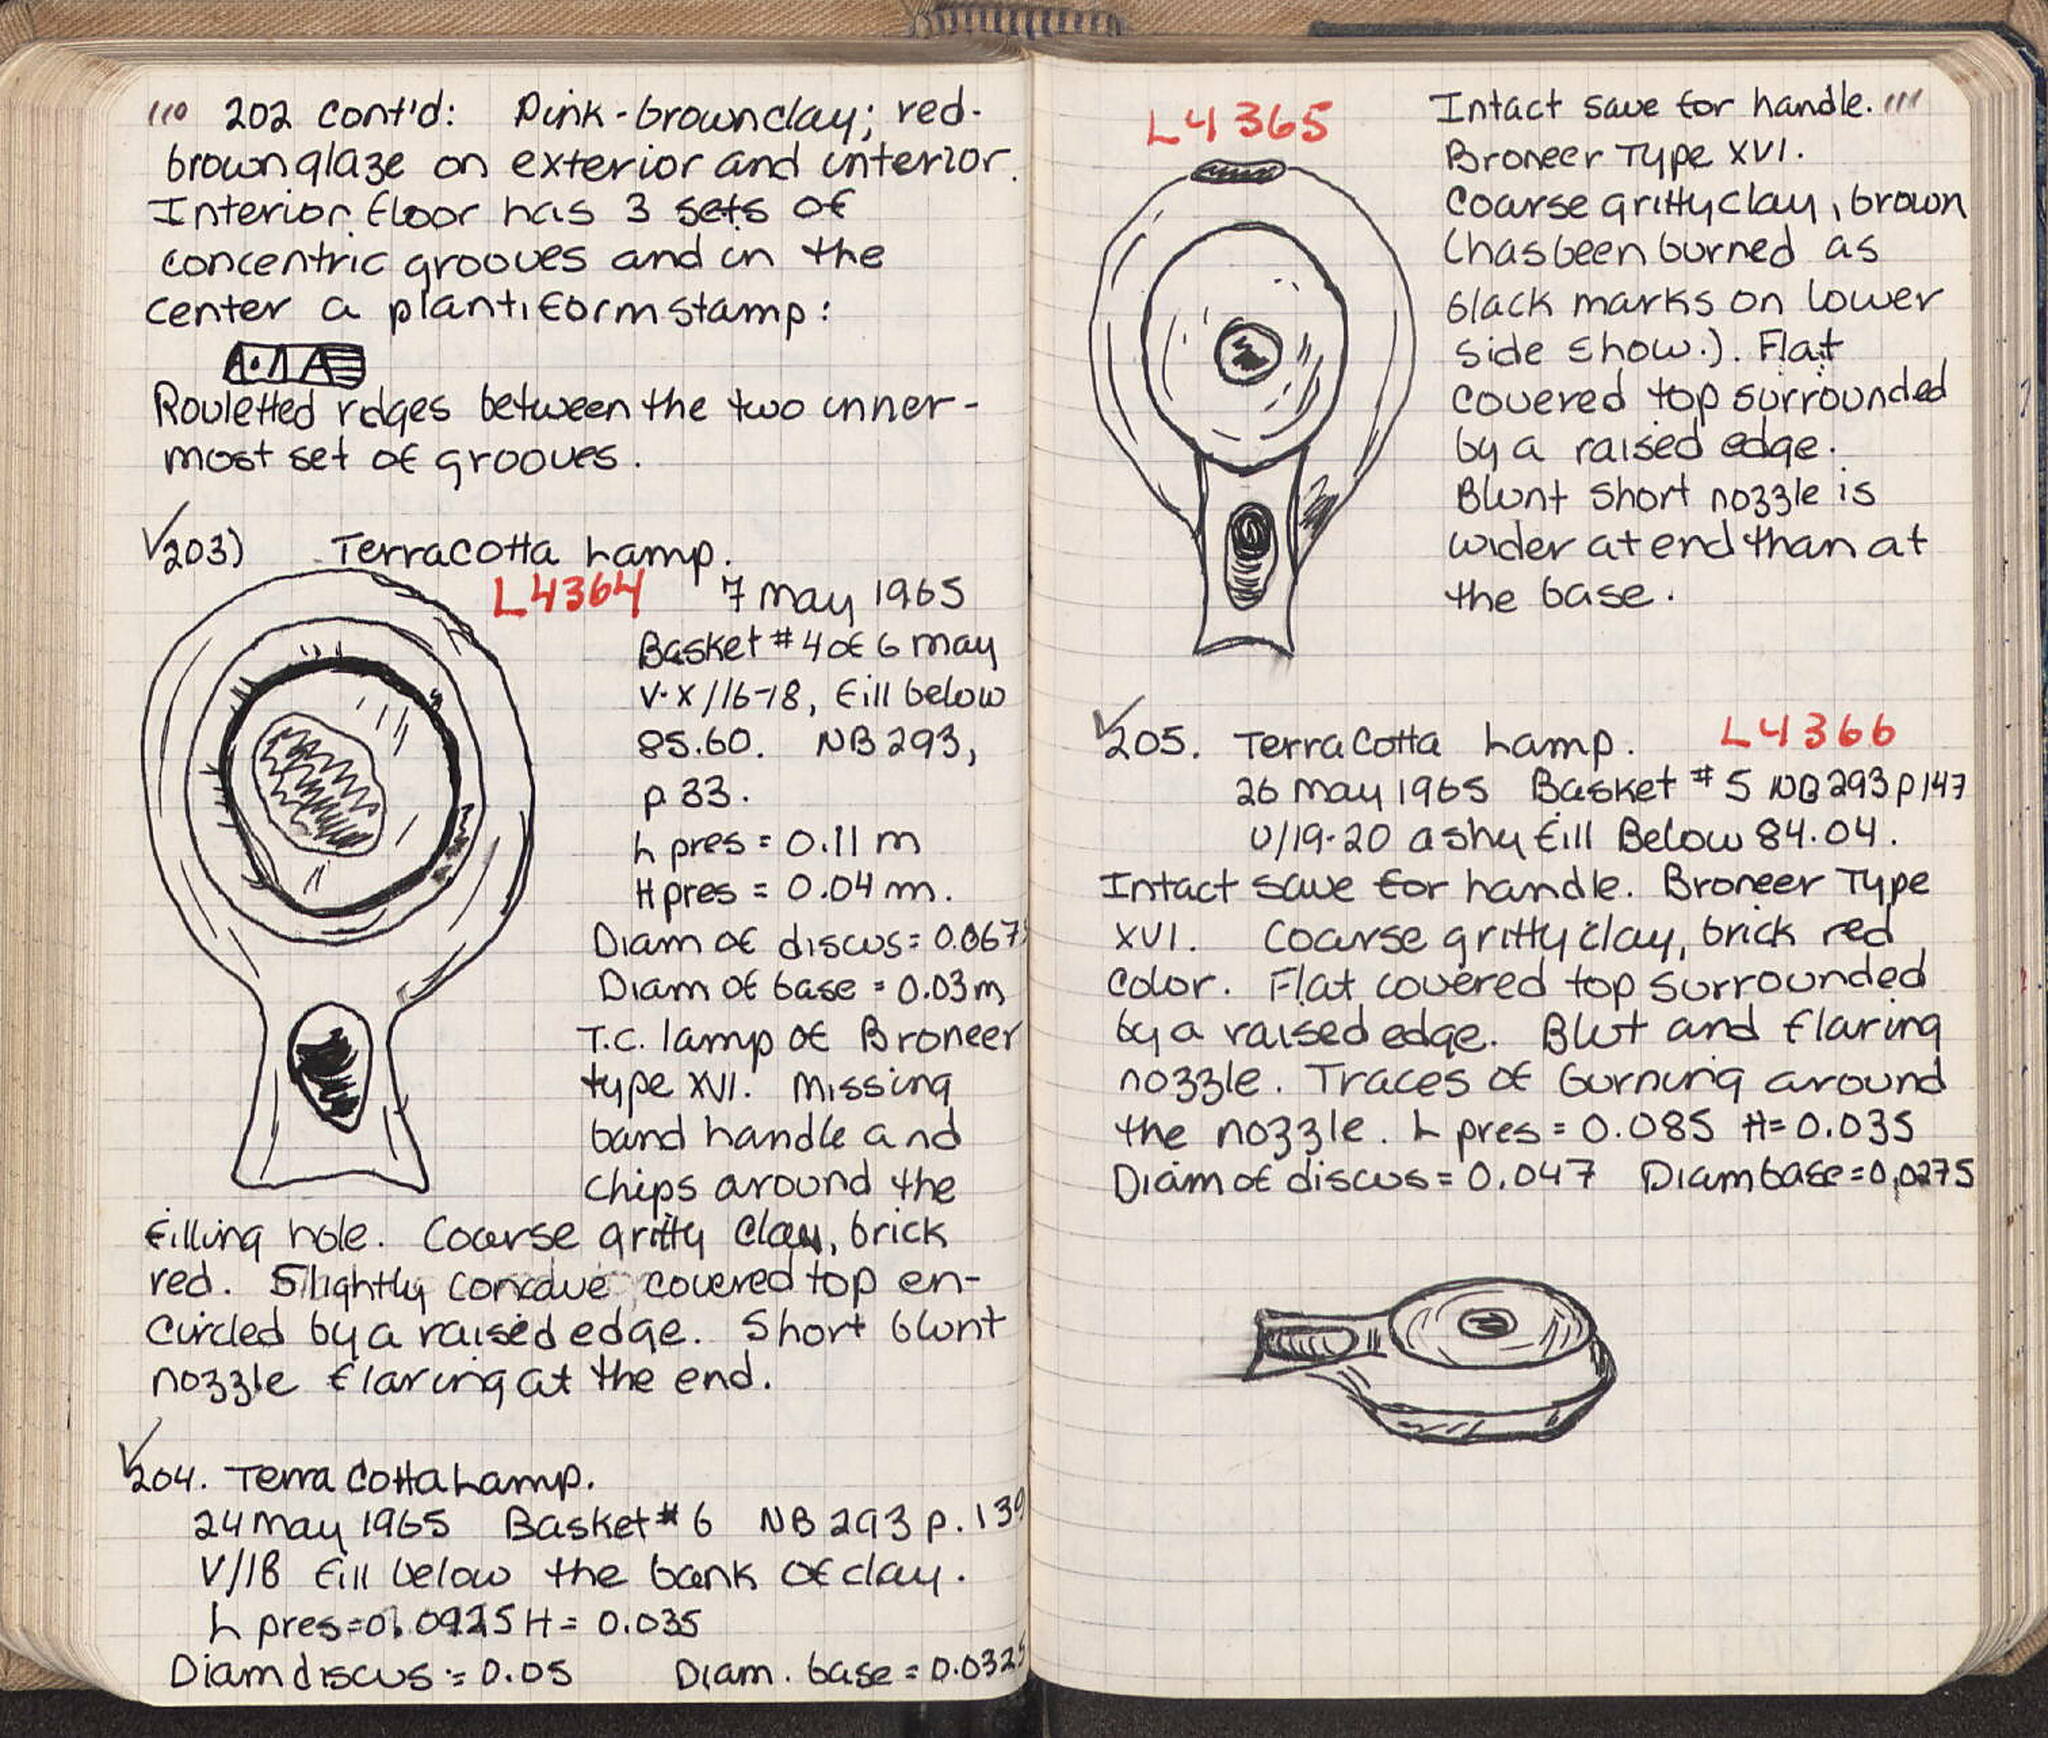 110 202 cont'd: Pink-brown clay; red-
brown glaze on exterior and interior.
Interior floor has 3 sets of
concentric grooves and in the
center a plantiform stamp:
Rouletted rdges between the two inner-
most set of grooves.
203) Terracotta Lamp.
L4364 7 May 1965
Basket #4 of 6 May
V-X/16-18, fill below
85.60. NB 293,
p 33.
L pres = 0.11 m
H pres = 0.04 m.
Diam of discus = 0.0675
Diam of base = 0.03 m
T.C. lamp of Broneer
type XVI. Missing
band handle and
chips around the
filling hole. Coarse gritty clay, brick
red. Slightly concave covered top en-
circled by a raised edge. Short blunt
nozzle flaring at the end.
204. Terra Cotta Lamp.
24 May 1965 Basket #6 NB 293 p. 139
V/18 fill below the bank of clay.
L pres = 0.0925 H = 0.035
Diam discus = 0.05 Diam. base = 0.0325
L4365
Intact save for handle. 111
Broneer Type XVI.
Coarse gritty clay, brown
(has been burned as
black marks on lower
side show.). Flat
covered top surrounded
by a raised edge.
Blunt short nozzle is
wider at end than at
the base.
205. Terra Cotta Lamp. L4366
26 May 1965 Basket #5 NB 293 p 147
U/19-20 ashy fill Below 84.04.
Intact save for handle. Broneer Type
XVI. Coarse gritty clay, brick red
color. Flat covered top surrounded
by a raised edge. Blut and flaring
nozzle. Traces of burning around
the nozzle. L pres = 0.085 H = 0.035
Diam of discus = 0.047 Diam base = 0.0275